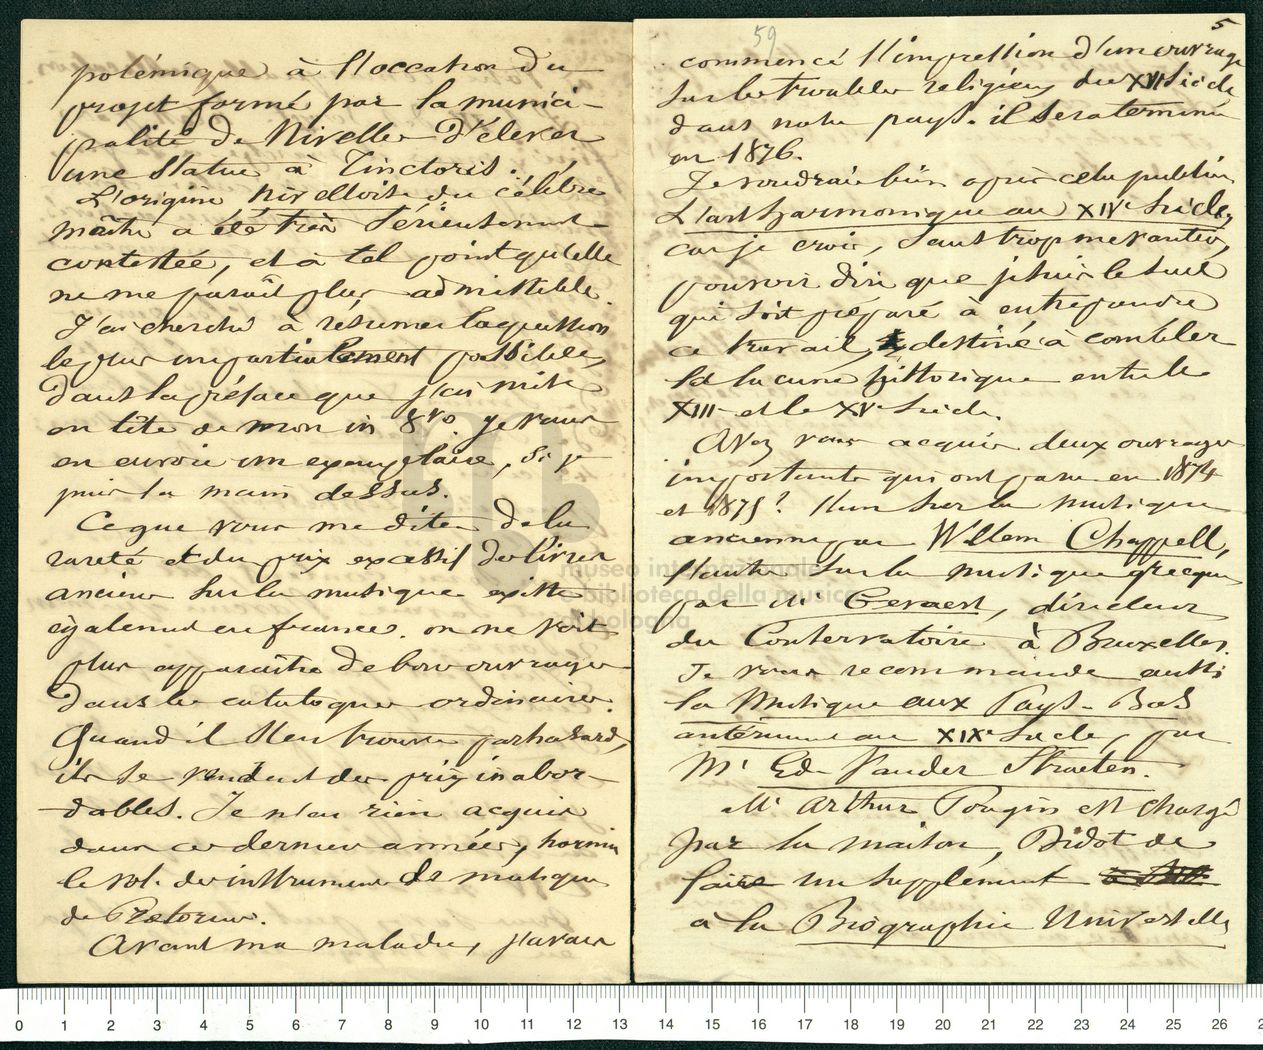 polémique à l'occasion du
projet formé par la munici-
palité de Nivelles d'élever
une statue à Tinctoris.
L'origine nivelloise du célèbre
maître a été très sérieusement
contestée, et à tel point qu'elle
ne me paraît plus admissible.
J'ai cherché à résumer la question
le plus impartialement possible,
dans la préface que j'ai mise
en tête de mon in 8vo. Je vous
en envoie un exemplaire, si je
puis la main dessus.
Ce que vous me dites de la
rareté et du prix excessif de livres
anciens sur la musique existe
également en france. on ne voit
plus apparaître de bons ouvrages
dans les catalogues ordinaires.
Quand il s'en trouve par hasard,
ils se vendent des prix inabor-
dables. Je n'ai rien acquis
dans ces dernières années, hormis
le vol. des instrumens de musique
de Pretorius.
Avant ma maladie, j'avais
59
5
commencé l'impression d'un ouvrage
sur les troubles religieux du XVI siècle
dans notre pays. il sera terminé
en 1876.
Je voudrais bien après cela publier
L'art harmonique au XIVe siècle,
car je crois, sans trop me vanter,
pouvoir dire que je suis le seul
qui soit préparé à entreprendre
ce travail, destiné à combler
la lacune historique entre le
XIII et le XVe siècle.
Avez vous acquis deux ouvrages
importants qui ont paru en 1874
et 1875? l'un sur la musique
ancienne par Willem Chappell,
l'autre sur la musique grecque
par Mr Gevaert, directeur
du Conservatoire à Bruxelles.
Je vous recommande aussi
la Musique aux Pays-Bas
antérieure au XIXe siècle, par
Mr Ed. Vander Straeten.
Mr Arthur Pougin est chargé
par la maison Didot de
faire un supplément
à la Biographie Universelle
museo internazionale
e biblioteca della musica
di bologna
0 1 2 3 4 5 6 7 8 9 10 11 12 13 14 15 16 17 18 19 20 21 22 23 24 25 26